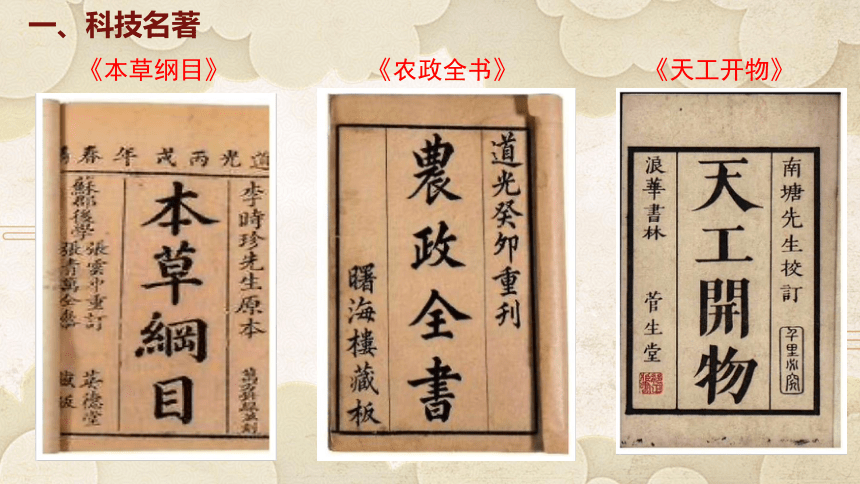 一、科技名著
《本草纲目》
《农政全书》
《天工开物》
道光丙戌年春
李時珍先生原本
本草綱目
蘇郡後學
張雲中重訂
張青萬全參
英德堂
藏板
道光癸卯重刊
農政全書
曙海樓藏板
南塘先生校訂
天工開物
浪華書林
菅生堂